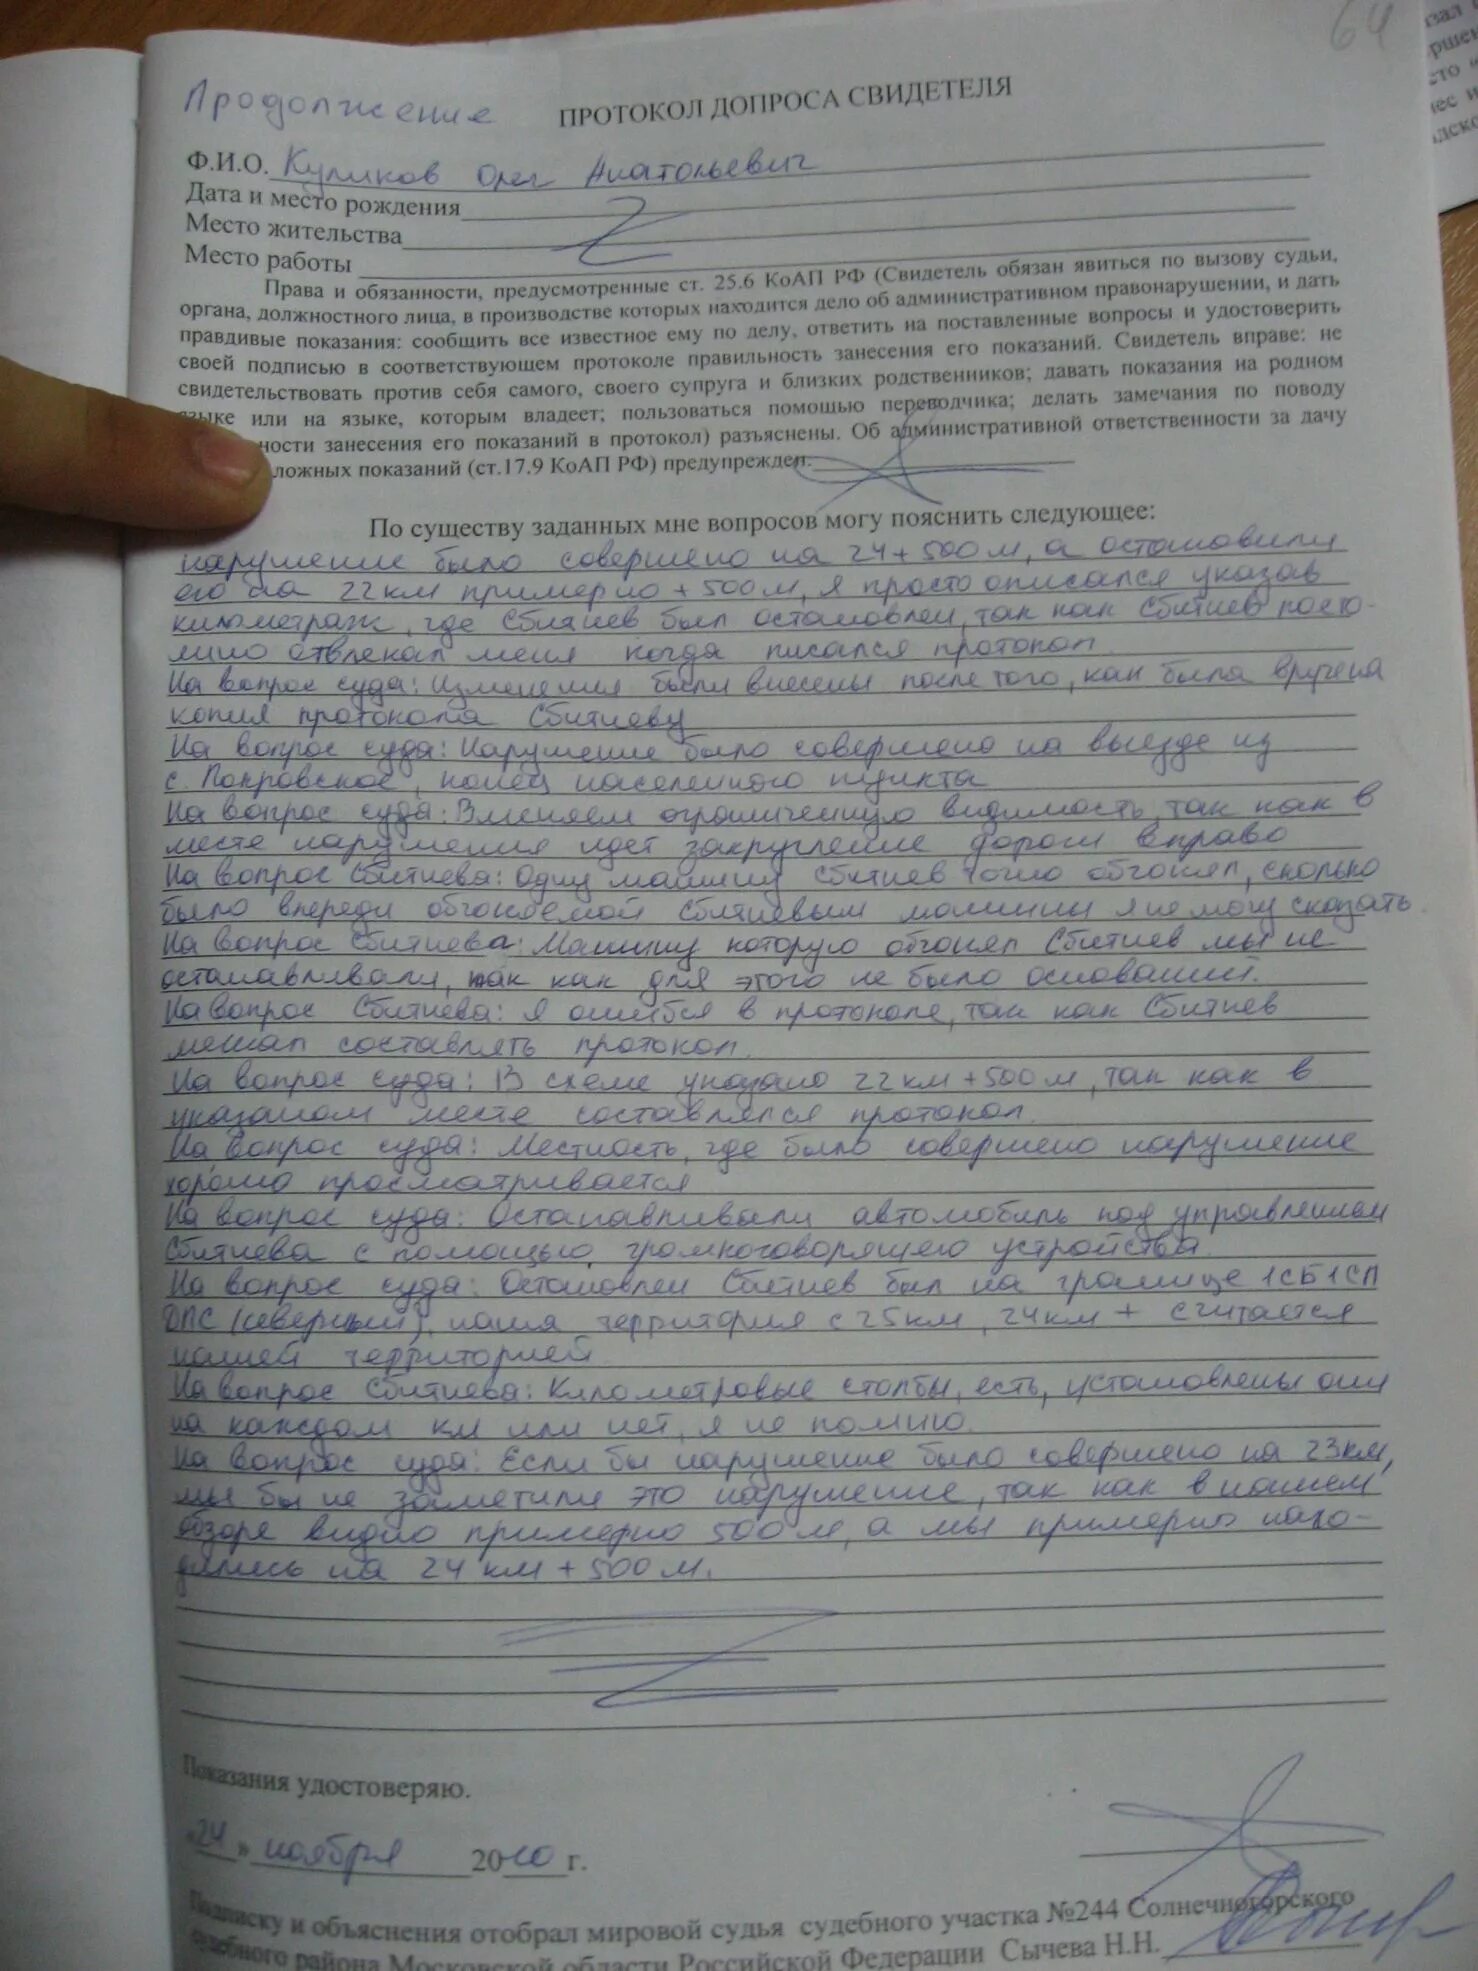 64
Продолжение
ПРОТОКОЛ ДОПРОСА СВИДЕТЕЛЯ
Ф.И.О. Куликов Олег Анатольевич
Дата и место рождения
Место жительства
Место работы
Права и обязанности, предусмотренные ст. 25.6 КоАП РФ (Свидетель обязан явиться по вызову судьи,
органа, должностного лица, в производстве которых находится дело об административном правонарушении, и дать
правдивые показания: сообщить все известное ему по делу, ответить на поставленные вопросы и удостоверить
своей подписью в соответствующем протоколе правильность занесения его показаний. Свидетель вправе: не
свидетельствовать против себя самого, своего супруга и близких родственников; давать показания на родном
языке или на языке, которым владеет; пользоваться помощью переводчика; делать замечания по поводу
ности занесения его показаний в протокол) разъяснены. Об административной ответственности за дачу
ложных показаний (ст.17.9 КоАП РФ) предупрежден.
По существу заданных мне вопросов могу пояснить следующее:
нарушение было совершено на 24+500м, а остановили
его на 22км примерно +500м, я просто описался указав
километраж, где Сбитнев был остановлен, так как Сбитнев посто-
янно отвлекал меня когда писался протокол.
На вопрос суда: Изменения были внесены после того, как была вручена
копия протокола Сбитневу
На вопрос суда: Нарушение было совершено на выезде из
с. Покровское, конец населенного пункта
На вопрос суда: Вменяем ограниченную видимость, так как в
месте нарушения идет закругление дороги вправо
На вопрос Сбитнева: Одну машину Сбитнев точно обгонял, сколько
было впереди обгоняемой Сбитневым машины я не могу сказать
На вопрос Сбитнева: Машину которую обгонял Сбитнев мы не
останавливали, так как для этого не было оснований.
На вопрос Сбитнева: Я ошибся в протоколе, так как Сбитнев
мешал составлять протокол.
На вопрос суда: В схеме указано 22км+500м, так как в
указаном месте составлялся протокол.
На вопрос суда: Местность, где было совершено нарушение
хорошо просматривается
На вопрос суда: Останавливали автомобиль под управлением
Сбитнева с помощью громкоговорящего устройства.
На вопрос суда: Остановлен Сбитнев был на границе 1СБ1СП
ДПС (северный), наша территория с 25км, 24км + считается
нашей территорией.
На вопрос Сбитнева: Километровые столбы, есть, установлены они
на каждом км или нет, я не помню.
На вопрос суда: Если бы нарушение было совершено на 23км,
мы бы не заметили это нарушение, так как в нашем
обзоре видно примерно 500м, а мы примерно нахо-
дились на 24 км + 500м.
Показания удостоверяю.
«24» ноября 2010 г.
Подписку и объяснения отобрал мировой судья судебного участка №244 Солнечногорского
судебного района Московской области Российской Федерации Сычева Н.Н.